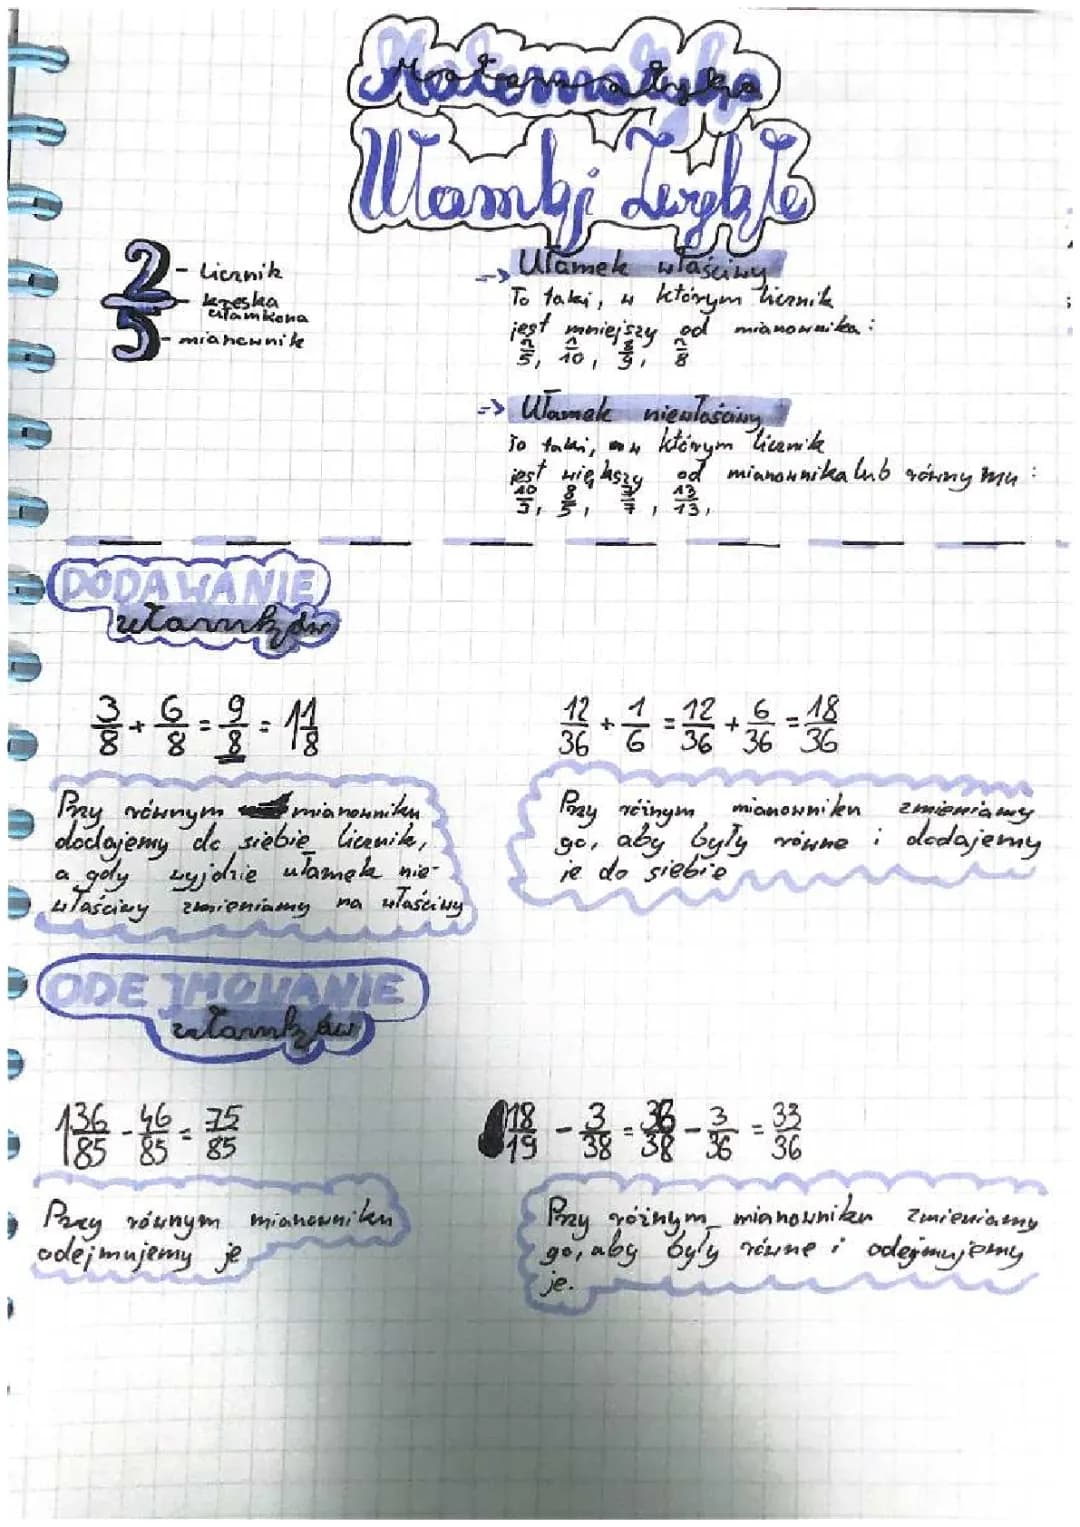 Matematyka
Ułamki Zwykłe
2 - Licznik
- kreska
ułamkowa
5 - mianownik
-> Ułamek właściwy
To taki, w którym licznik
jest mniejszy od mianownika:
10, 9, 8
-> Ułamek niewłaściwy
To taki, w którym licznik
jest większy od mianownika lub równy mu:
10/3, 8/5, 13/13,
DODAWANIE
ułamków
3/8 + 6/8 = 9/8 = 1 1/8
12/36 + 1/6 = 12/36 + 6/36 = 18/36
Przy równym mianowniku
dodajemy do siebie licznik,
a gdy wyjdzie ułamek nie-
właściwy zmieniamy na właściwy
Przy różnym mianowniku zmieniamy
go, aby były równe i dodajemy
je do siebie
ODEJMOWANIE
ułamków
1 36/85 - 46/85 = 75/85
18/19 - 3/38 = 36/38 - 3/36 = 33/36
Przy równym mianowniku
odejmujemy je
Przy różnym mianowniku zmieniamy
go, aby były równe i odejmujemy
je.